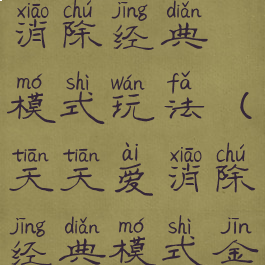 xiāo chú jīng diǎn
消除经典
mó shì wán fǎ
模式玩法(
tiān tiān ài xiāo chú
天天爱消除
jīng diǎn mó shì jīn
经典模式金